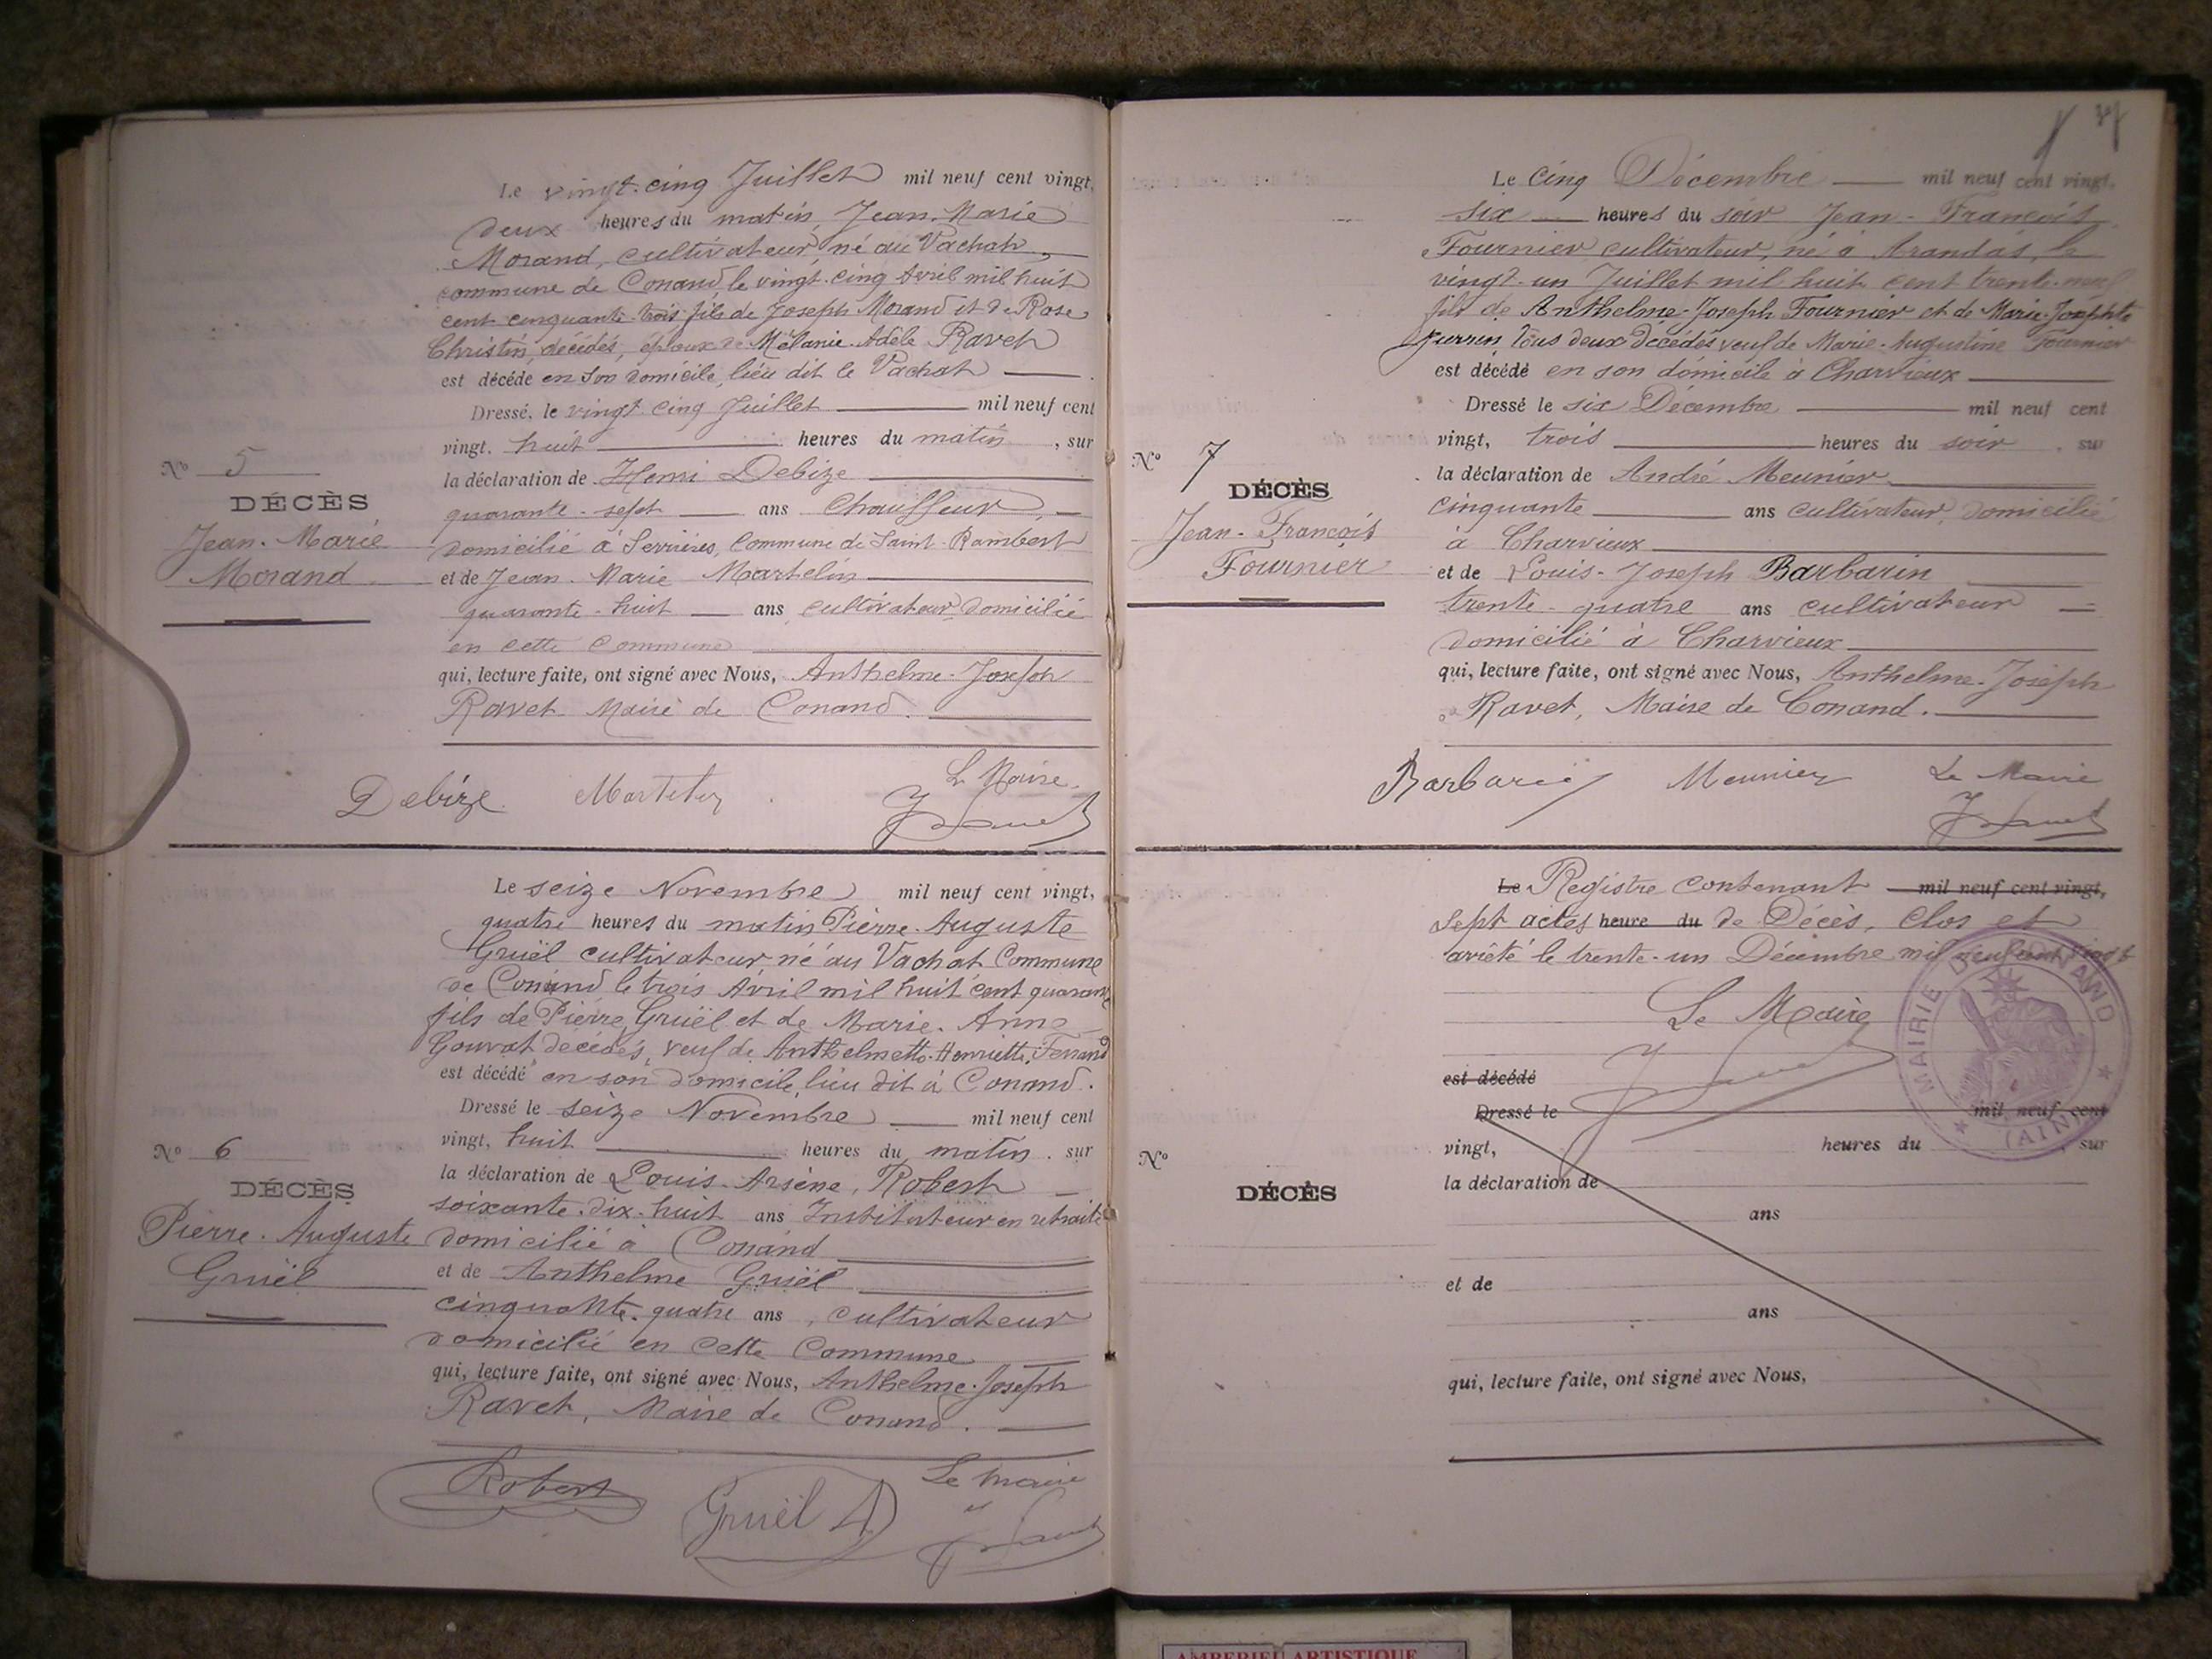 Le vingt-cinq Juillet mil neuf cent vingt,
deux heures du matin, Jean-Marie
Morand, cultivateur, né au Vachat
commune de Conand, le vingt-cinq Avril mil huit
cent cinquante-trois fils de Joseph Morand et de Rose
Christin, décédés, époux de Mélanie-Adèle Ravet
est décédé en son domicile, lieu dit le Vachat
Dressé, le vingt cinq Juillet mil neuf cent
vingt, huit heures du matin, sur
la déclaration de Henri Debize
quarante-sept ans Chauffeur,
domicilié à Serrières, Commune de Saint-Rambert
et de Jean-Marie Martelin
quarante-huit ans, cultivateur, domicilié
en cette Commune
qui, lecture faite, ont signé avec Nous, Anthelme-Joseph
Ravet Maire de Conand.
Nº 5
DÉCÈS
Jean-Marie
Morand
Debize Le Maire
Le seize Novembre mil neuf cent vingt,
quatre heures du matin Pierre-Auguste
Gruël cultivateur né au Vachat Commune
de Conand le trois Avril mil huit cent quarante
fils de Pierre Gruël et de Marie-Anne
Gouvat décédés, veuf de Anthelmette-Henriette Ferrand
est décédé en son domicile, lieu dit à Conand.
Dressé le seize Novembre mil neuf cent
vingt, huit heures du matin, sur
la déclaration de Louis-Arsène, Robert
soixante-dix-huit ans Instituteur en retraite
domicilié à Conand
et de Anthelme Gruël
cinquante-quatre ans, cultivateur
domicilié en cette Commune
qui, lecture faite, ont signé avec Nous, Anthelme-Joseph
Ravet, Maire de Conand.
Nº 6
DÉCÈS
Pierre-Auguste
Gruël
Robert Gruël A Le maire
Le Cinq Décembre mil neuf cent vingt,
six heures du soir Jean-François
Fournier cultivateur, né à Arandas, le
vingt-un Juillet mil huit cent trente-neuf
fils de Anthelme-Joseph Fournier et de Marie-Josephte
Perrin tous deux décédés veuf de Marie-Augustine Fournier
est décédé en son domicile à Charvieux
Dressé le six Décembre mil neuf cent
vingt, trois heures du soir, sur
la déclaration de André Meunier
cinquante ans cultivateur, domicilié
à Charvieux
et de Louis-Joseph Barbarin
trente-quatre ans cultivateur
domicilié à Charvieux
qui, lecture faite, ont signé avec Nous, Anthelme-Joseph
Ravet, Maire de Conand.
Nº 7
DÉCÈS
Jean-François
Fournier
Barbarin Meunier Le Maire
Le Registre contenant mil neuf cent vingt,
Sept actes heure du de Décès, Clos et
arrêté le trente-un Décembre mil neuf cent vingt
Le Maire
MAIRIE DE CONAND
(AIN)
est décédé
Dressé le mil neuf cent
vingt, heures du , sur
la déclaration de
ans
et de
ans
qui, lecture faite, ont signé avec Nous,
Nº
DÉCÈS
AMBERIEU ARTISTIQUE